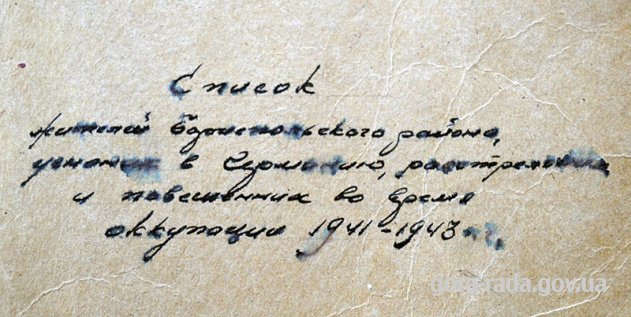 Список
жителей Бориспольского района,
угнанных в Германию, расстрелянных
и повешенных во время
оккупации 1941-1943 гг.
rada.gov.ua